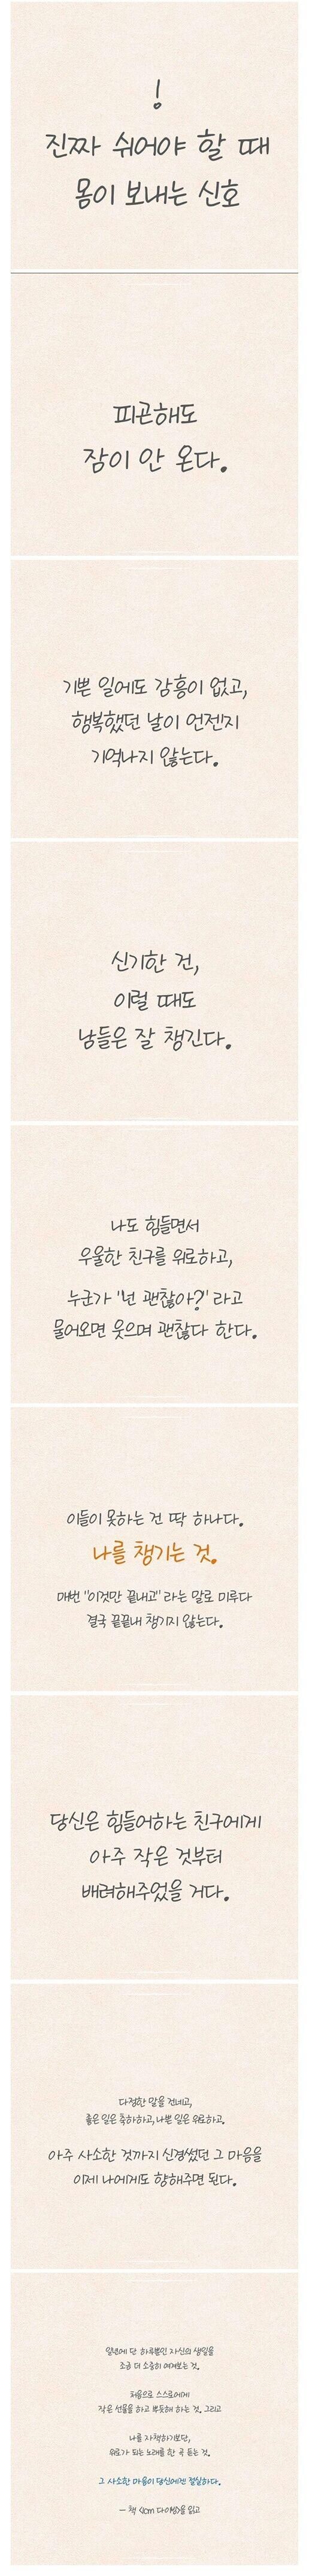 !
진짜 쉬어야 할 때
몸이 보내는 신호
피곤해도
잠이 안 온다.
기쁜 일에도 감흥이 없고,
행복했던 날이 언젠지
기억나지 않는다.
신기한 건,
이럴 때도
남들은 잘 챙긴다.
나도 힘들면서
우울한 친구를 위로하고,
누군가 '넌 괜찮아?' 라고
물어오면 웃으며 괜찮다 한다.
이들이 못하는 건 딱 하나다.
나를 챙기는 것.
매번 "이것만 끝내고" 라는 말로 미루다
결국 끝끝내 챙기지 않는다.
당신은 힘들어하는 친구에게
아주 작은 것부터
배려해주었을 거다.
다정한 말을 건네고,
좋은 일은 축하하고, 나쁜 일은 위로하고.
아주 사소한 것까지 신경썼던 그 마음을
이제 나에게도 향해주면 된다.
일년에 단 하루뿐인 자신의 생일을
조금 더 소중히 여겨보는 것.
처음으로 스스로에게
작은 선물을 하고 뿌듯해 하는 것. 그리고
나를 자책하기보단,
위로가 되는 노래를 한 곡 듣는 것.
그 사소한 마음이 당신에겐 절실하다.
- 책 <1cm 다이빙>을 읽고